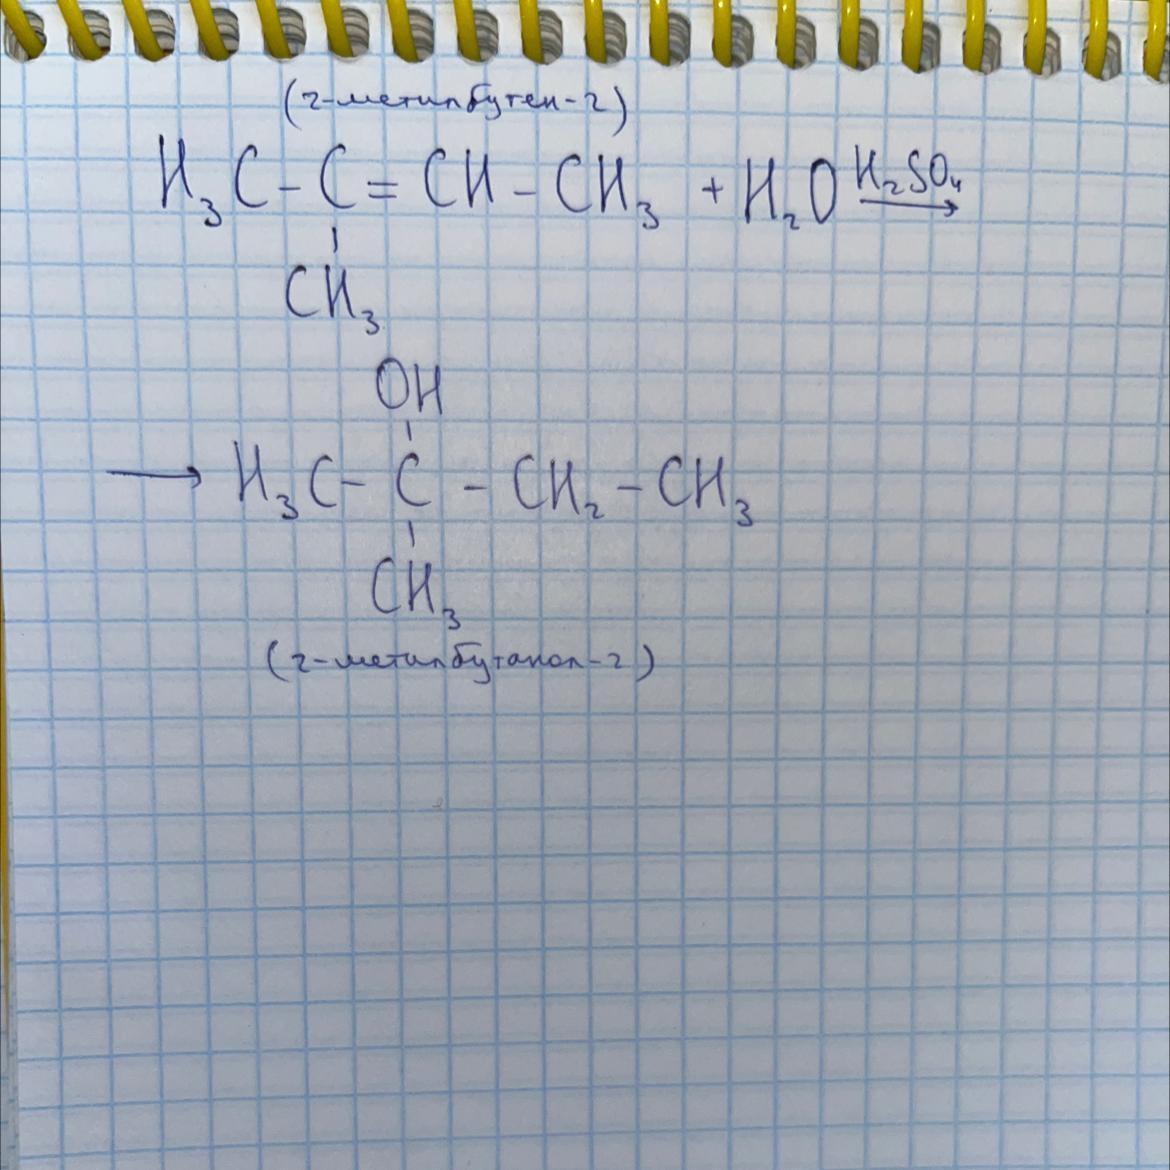 (2-метилбутен-2)
H₃C - C = CH - CH₃ + H₂O H₂SO₄ →
CH₃
OH
→ H₃C - C - CH₂ - CH₃
CH₃
(2-метилбутанол-2)